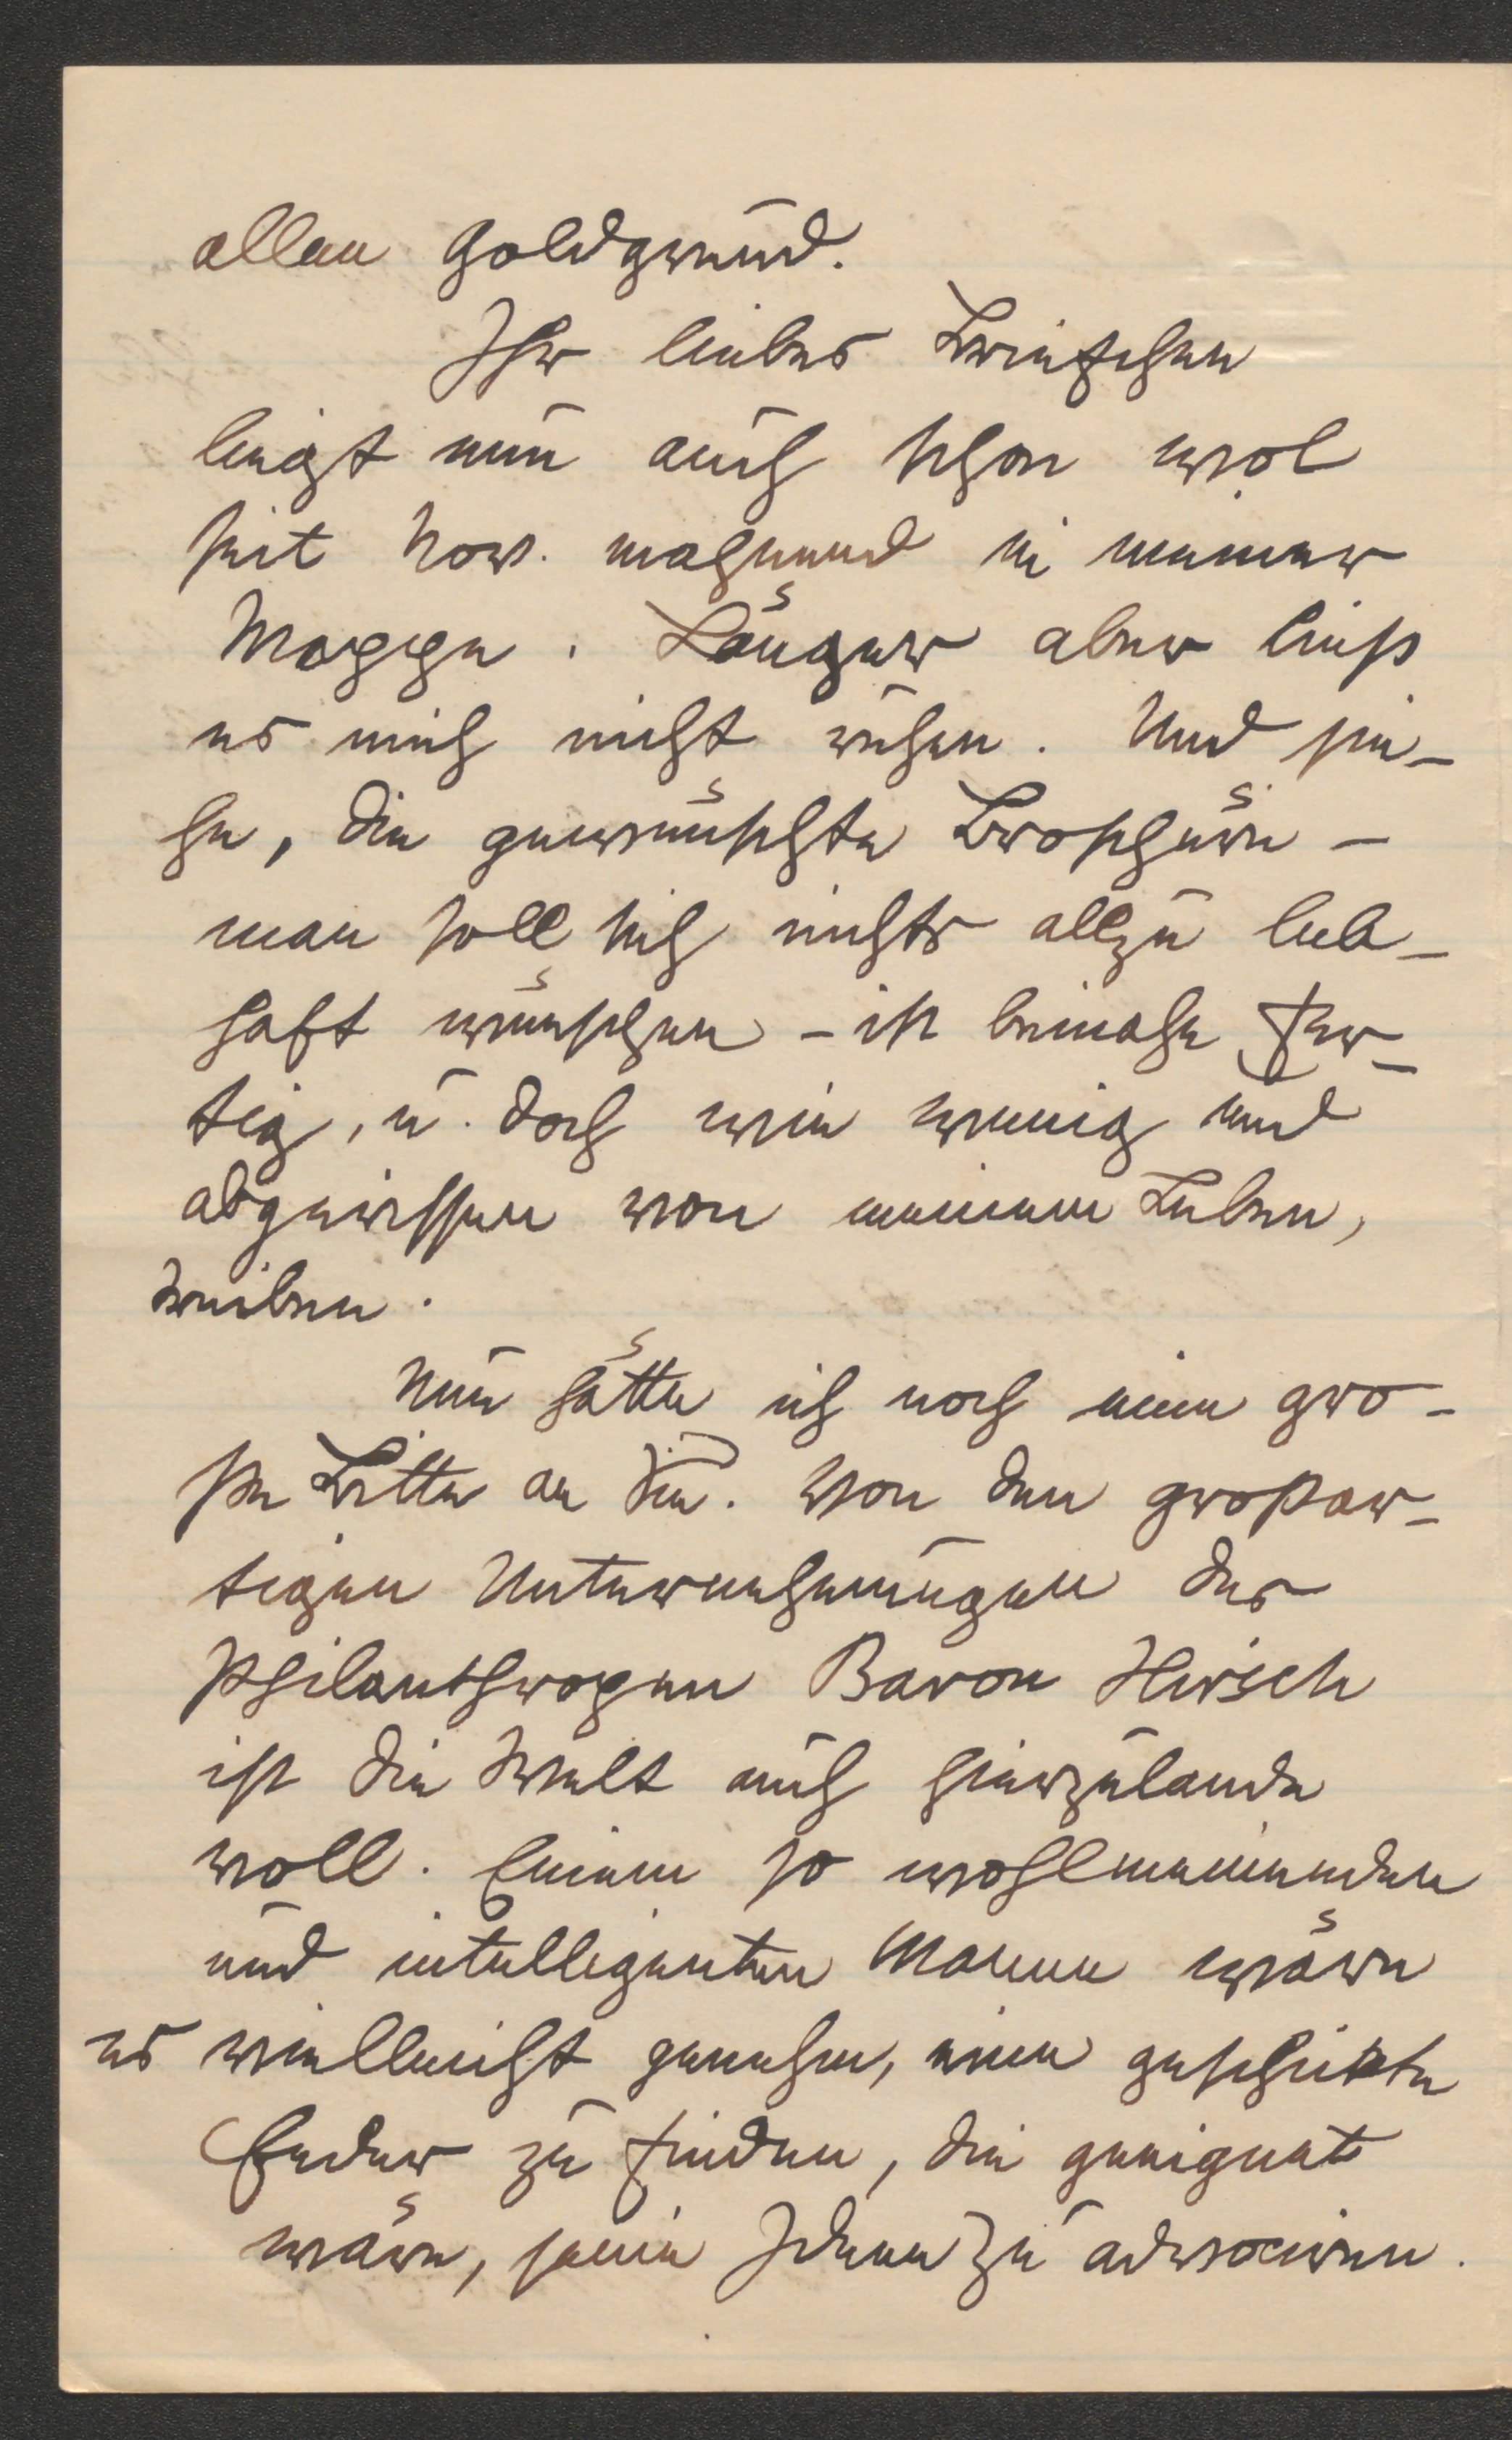 allen Goldgrund.
Ihr liebes Briefchen
liegt nun auch schon wol
seit Nov. mahnend in meiner
Mappe. Länger aber ließ
es mich nicht ruhen. Und sie-
he, die gewünschte Broschüre -
man soll sich nichts allzu leb-
haft wünschen - ist beinahe fer-
tig, u. doch wie wenig und
abgerissen von meinem Leben,
treiben.
Nun hätte ich noch eine gro-
ße Bitte an Sie. Von den großar-
tigen Unternehmungen des
Philanthropen Baron Hirsch
ist die Welt auch hierzulande
voll. Einem so wohlmeinenden
und intelligenten Manne wäre
es vielleicht genehm, eine geschikte
Feder zu finden, die geeignet
wäre, seine Ideen zu advociren.